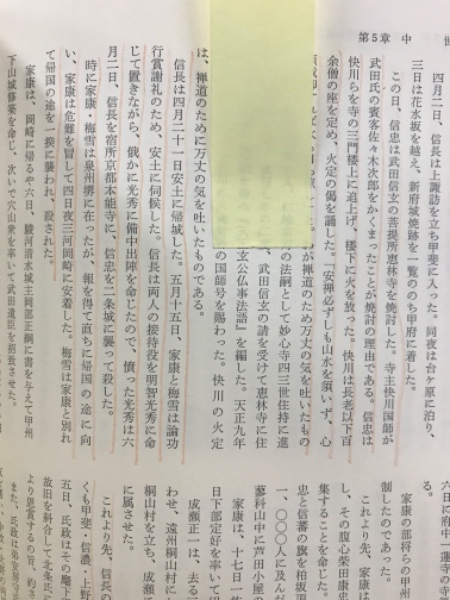 第5章 中 世
四月二日、信長は上諏訪を立ち甲斐に入った。同夜は台ヶ原に泊り、
三日は花水坂を越え、新府城焼跡を一覧ののち甲府に着した。
この日、信忠は武田信玄の菩提所恵林寺を焼討した。寺主快川国師が
武田氏の賓客佐々木次郎をかくまったことが焼討の理由である。信忠は
快川らを寺の三門楼上に追上げ、楼下に火を放った。快川は長老以下百
余僧の座を定め、火定の偈を誦した。「安禅必ずしも山水を須いず、心
が禅道のため万丈の気を吐いたもの
の法嗣として妙心寺四三世住持に進
、武田信玄の請を受けて恵林寺に住
玄公仏事法語』を編した。天正九年
の国師号を賜わった。快川の火定
は、禅道のために万丈の気を吐いたものである。
信長は四月二十一日安土に帰城した。五月十五日、家康と梅雪は論功
行賞謝礼のため、安土に伺候した。信長は両人の接待役を明智光秀に命
じて置きながら、俄かに光秀に備中出陣を命じたので、憤った光秀は六
月二日、信長を宿所京都本能寺に、信忠を二条城に襲って殺した。
時に家康・梅雪は泉州堺に在ったが、報を得て直ちに帰国の途に向
い、家康は危難を冒して四日夜三河岡崎に安着した。梅雪は家康と別れ
て帰国の途を一揆に襲われ、殺された。
家康は、岡崎に帰るや六日、駿河清水城主岡部正綱に書を与えて甲州
下山城修築を命じ、次いで穴山衆を率いて武田遺臣を招致させた。
六日に府中一蓮寺の寺
る。
家康の部将らの甲州
制したのであった。
これより先、家康は
し、その腹心柴田康忠
集することを命じた。
忠と信蕃の旗を柏坂
一、〇〇〇人に及んだ
家康は、十七日一
蓼科山中に芦田小屋の
日下部定好を率いて
成瀬正一は、去る
わせ、遠州桐山村に
桐山村を立ち、成瀬
に属させた。
これより先、信長の
くも甲斐・信濃・上野
五日、氏政はその麾下
故旧を糾合して北条氏
より恩賞するの旨、約
また、氏政は弟安房守